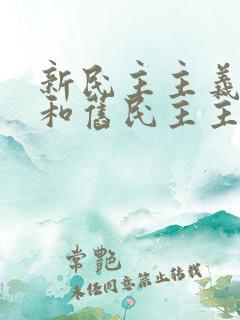 新民主主義
和舊民主主
常艷
未经同意禁止转载